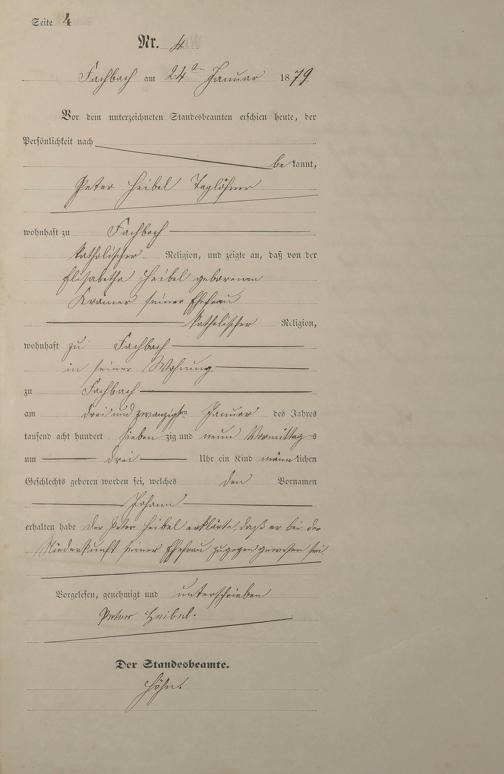 Seite 4
Nr. 4
Fachbach am 24ten Januar 1879
Vor dem unterzeichneten Standesbeamten erschien heute, der
Persönlichkeit nach
be kannt,
Peter Heibel Taglöhner
wohnhaft zu Fachbach
katholischer Religion, und zeigte an, daß von der
Elisabetha Heibel geborenen
Kramer seiner Ehefrau
katholischer Religion,
wohnhaft zu Fachbach
in seiner Wohnung
zu Fachbach
am drei und zwanzigsten Januar des Jahres
tausend acht hundert sieben zig und neun Vormittags
um drei Uhr ein Kind männlichen
Geschlechts geboren worden sei, welches den Vornamen
Johann
erhalten habe Der Peter Heibel erklärte, daß er bei der
Niederkunft seiner Ehefrau zugegen gewesen sei
Vorgelesen, genehmigt und unterschrieben
Peter Heibel.
Der Standesbeamte.